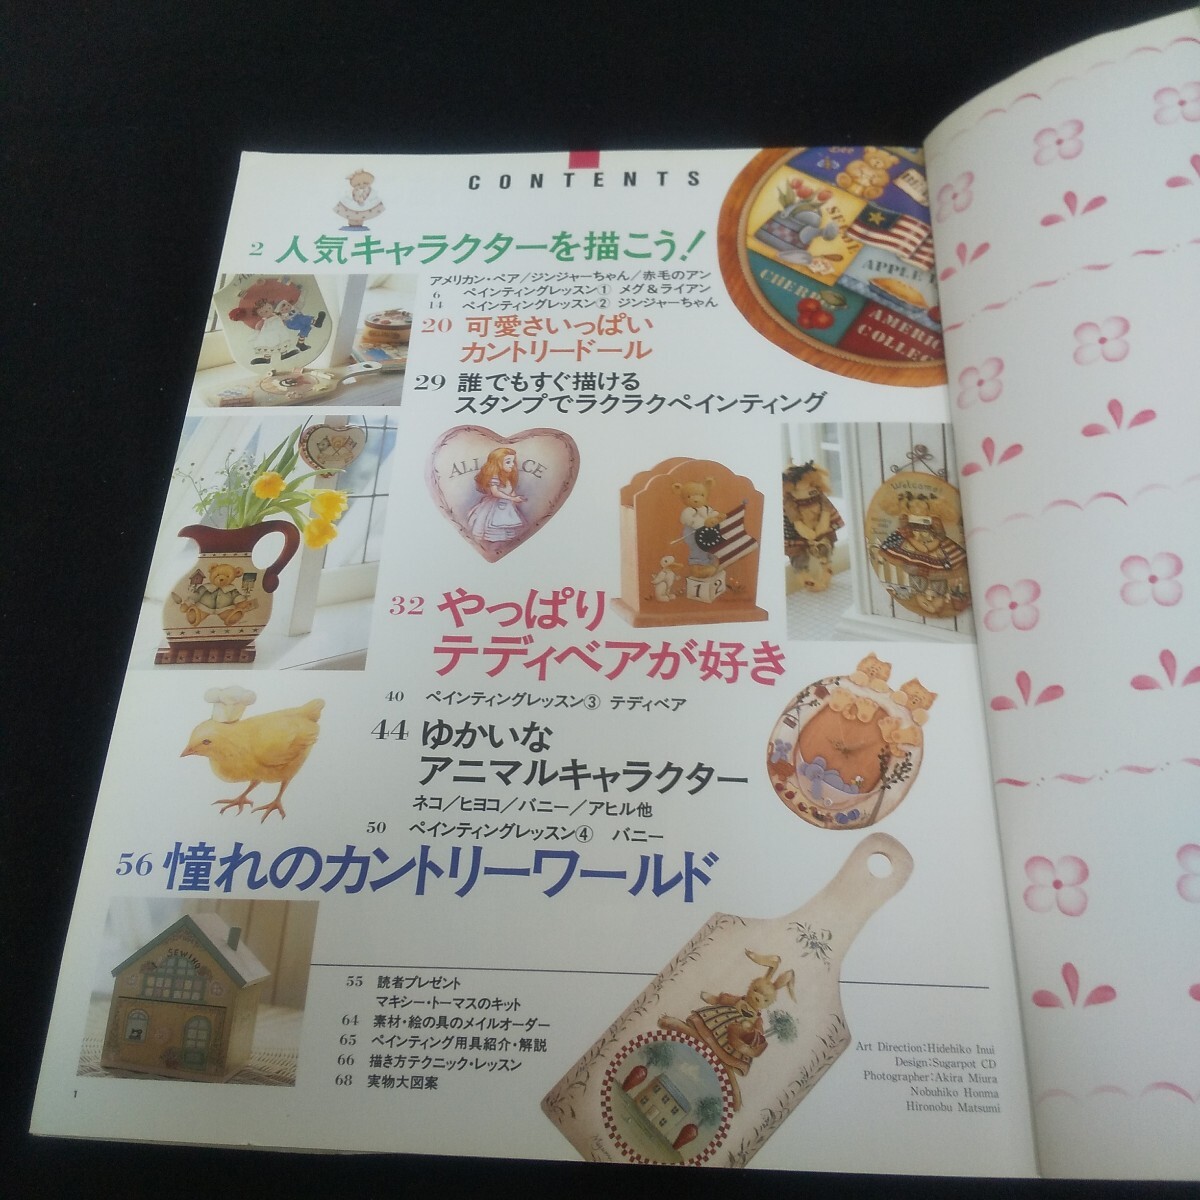 CONTENTS
2 人気キャラクターを描こう!
アメリカン・ベア/ジンジャーちゃん/赤毛のアン
6 ペインティングレッスン① メグ&ライアン
14 ペインティングレッスン② ジンジャーちゃん
20 可愛さいっぱい
カントリードール
29 誰でもすぐ描ける
スタンプでラクラクペインティング
SEW
APPLE
CHERRY
ALICE
Welcome
1 2
32 やっぱり
テディベアが好き
40 ペインティングレッスン③ テディベア
44 ゆかいな
アニマルキャラクター
ネコ/ヒヨコ/バニー/アヒル他
50 ペインティングレッスン④ バニー
56 憧れのカントリーワールド
SEWING
55 読者プレゼント
マキシー・トーマスのキット
64 素材・絵の具のメイルオーダー
65 ペインティング用具紹介・解説
66 描き方テクニック・レッスン
68 実物大図案
Art Direction:Hidehiko Inui
Design:Sugarpot CD
Photographer:Akira Miura
Nobuhiko Honma
Hironobu Matsumi
1